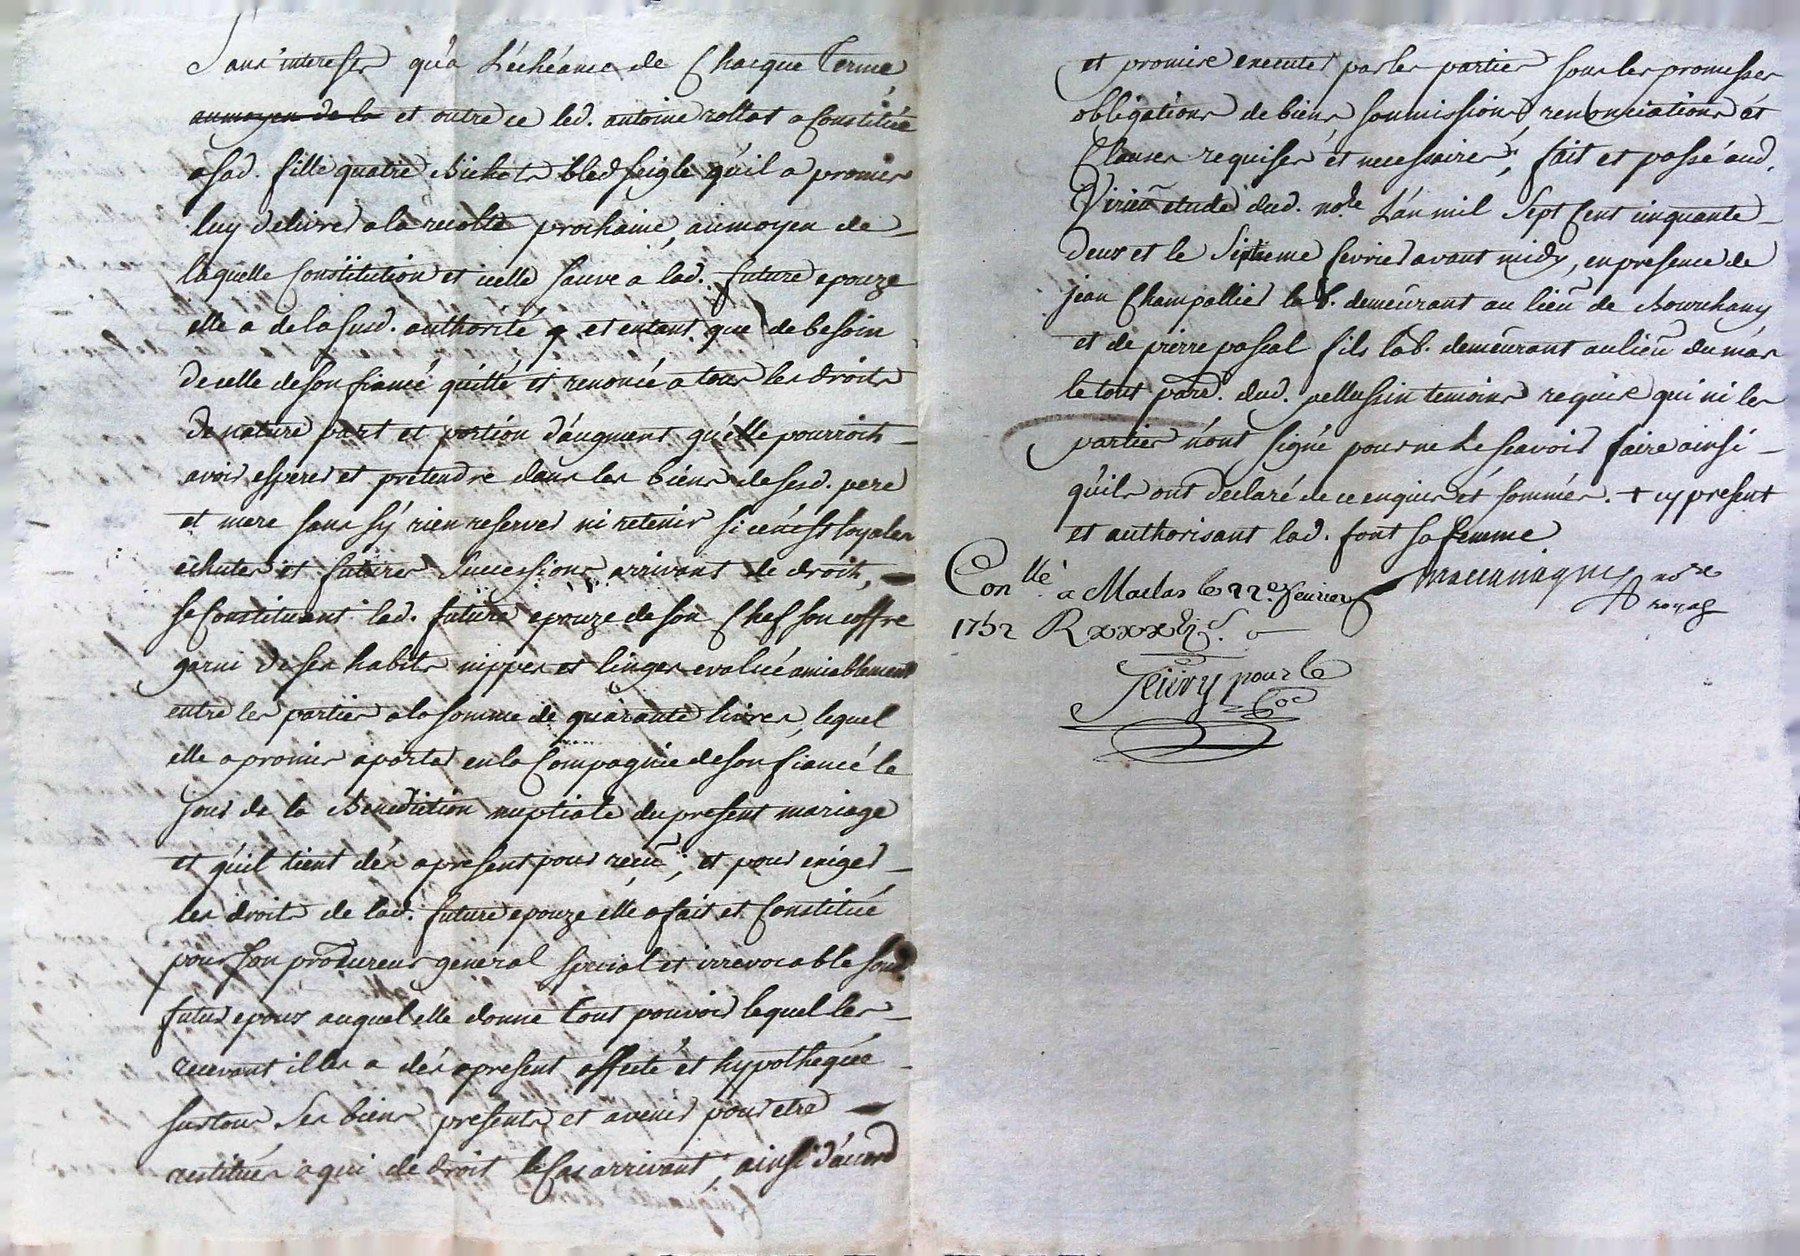 Sans interests qu'a L'échéance de Chacque Terme,
aumoyen de la et outre ce led. antoine rollat a Constitué
a sad. fille quatre Bichets bled seigle qu'il a promis
luy delivrer a la recolte prochaine, aumoyen de
laquelle Constitution et icelle sauve a lad. future epouze
elle a de la susd. authorité et entant que de besoin
de celle de son fiancé quitté et renoncé a tous les droits
de nature part et portion d'augment qu'elle pourroit
avoir esperer et pretendre dans les biens de sesd. pere
et mere sans s'y rien reserver ni retenir si ce n'est loyales
echutes et futures successions arrivant de droit,
se Constituant lad. future epouze de son Chef son coffre
garni de ses habits nippes et linges evalué amiablement
entre les parties a la somme de quarante livres, lequel
elle a promis aporter en la Compagnie de son fiancé le
jour de la Benediction nuptiale du present mariage
et qu'il tient dés apresent pour recu; et pour exiger
les droits de lad. future epouze elle a fait et Constitué
pour son procureur general special et irrevocable sond.
futur epoux auquel elle donne tout pouvoir lequel les
recevant il les a dés apresent affecté et hypothequée
sur tous ses biens presents et avenir pour etre
restitués a qui de droit le Cas arrivant, ainsi d'acord
et promise executer par les parties sous les promesses
obligations de biens soumissions, renonciations et
Clauses requises et necessaires, fait et passé aud.
Virieu etude dud. nore. L'an mil Sept Cent cinquante
deux et le Septieme fevrier avant midy, en presence de
jean Champallier lab. demeurant au lieu de
et de pierre pascal fils lab. demeurant au lieu du mas
le tout parr. dud. pellussin temoins requis qui ni les
parties n'ont signé pour ne le scavoir faire ainsi
qu'ils ont declaré de ce enquis et sommés. + cy present
et authorisant lad. font sa femme
nore
royal
Conllé. a Maclas le 22e. fevrier
1752 R
pour le